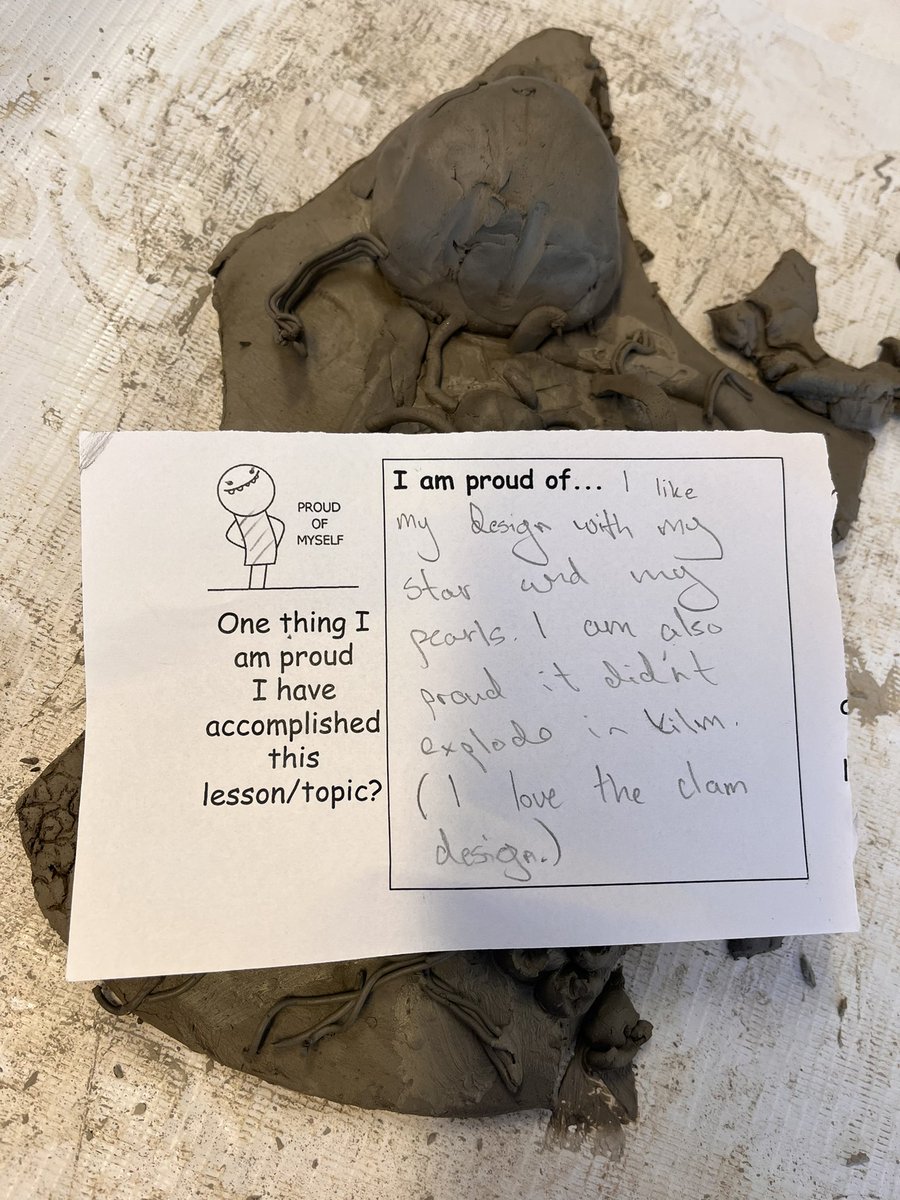 PROUD
OF
MYSELF
One thing I
am proud
I have
accomplished
this
lesson/topic?
I am proud of... I like
my design with my
star and my
pearls. I am also
proud it didn't
explode in kilm.
(I love the clam
design.)